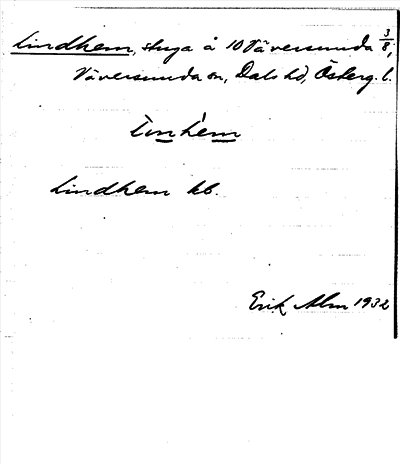 Lindhem, stuga å 10 Väversunda 3/8,
Väversunda sn, Dals hd, Österg. l.
Linhem
Lindhem kb.
Erik Alm 1932